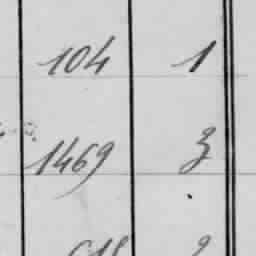 104 1
1469 3